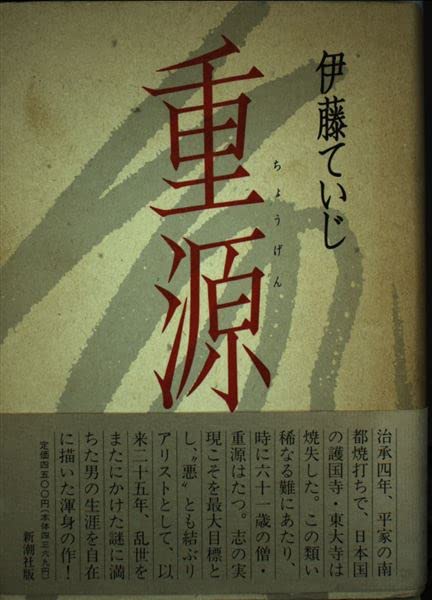 伊藤ていじ
重源
ちょうげん
治承四年、平家の南
都焼打ちで、日本国
の護国寺・東大寺は
焼失した。この類い
稀なる難にあたり、
時に六十一歳の僧・
重源はたつ。志の実
現こそを最大目標と
し、〝悪〟とも結ぶリ
アリストとして、以
来二十五年、乱世を
またにかけた謎に満
ちた男の生涯を自在
に描いた渾身の作！
定価四五〇〇円(本体四三六九円)
新潮社版